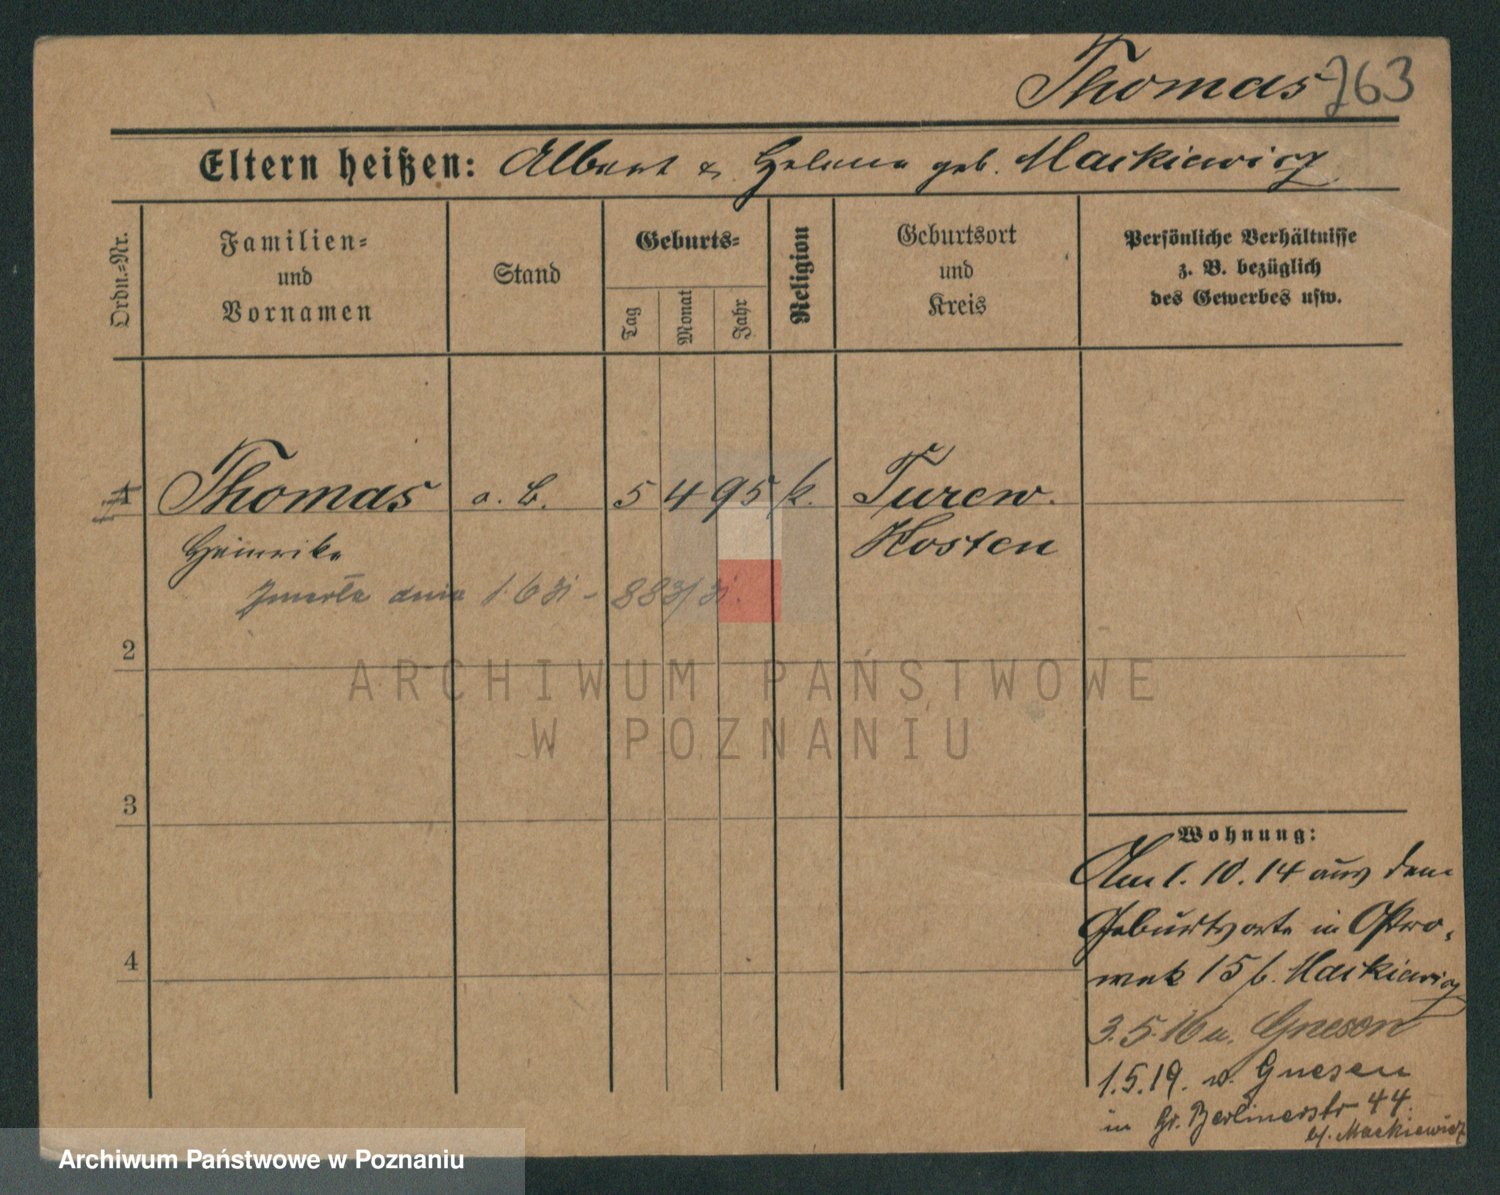 Thomas 763
Eltern heißen: Albert & Helene geb. Mackiewicz
Ordn.=Nr.
Familien=
und
Vornamen
Stand
Geburts=
Tag
Monat
Jahr
Religion
Geburtsort
und
Kreis
Persönliche Verhältnisse
z. B. bezüglich
des Gewerbes usw.
1 Thomas a. B. 5 4 95 k. Turew.
Kosten
zmarła dnia 1.6 31 - 883/31.
2
ARCHIWUM PAŃSTWOWE
W POZNANIU
3
4
Wohnung:
Am 1. 10. 14 aus dem
Geburtsorte in Ostro-
wek 15 b. Mackiewicz
3.5.16 u. Gnesen
1.5.19. v. Gnesen
in Gr. Berlinerstr 44
b/. Mackiewicz
Archiwum Państwowe w Poznaniu